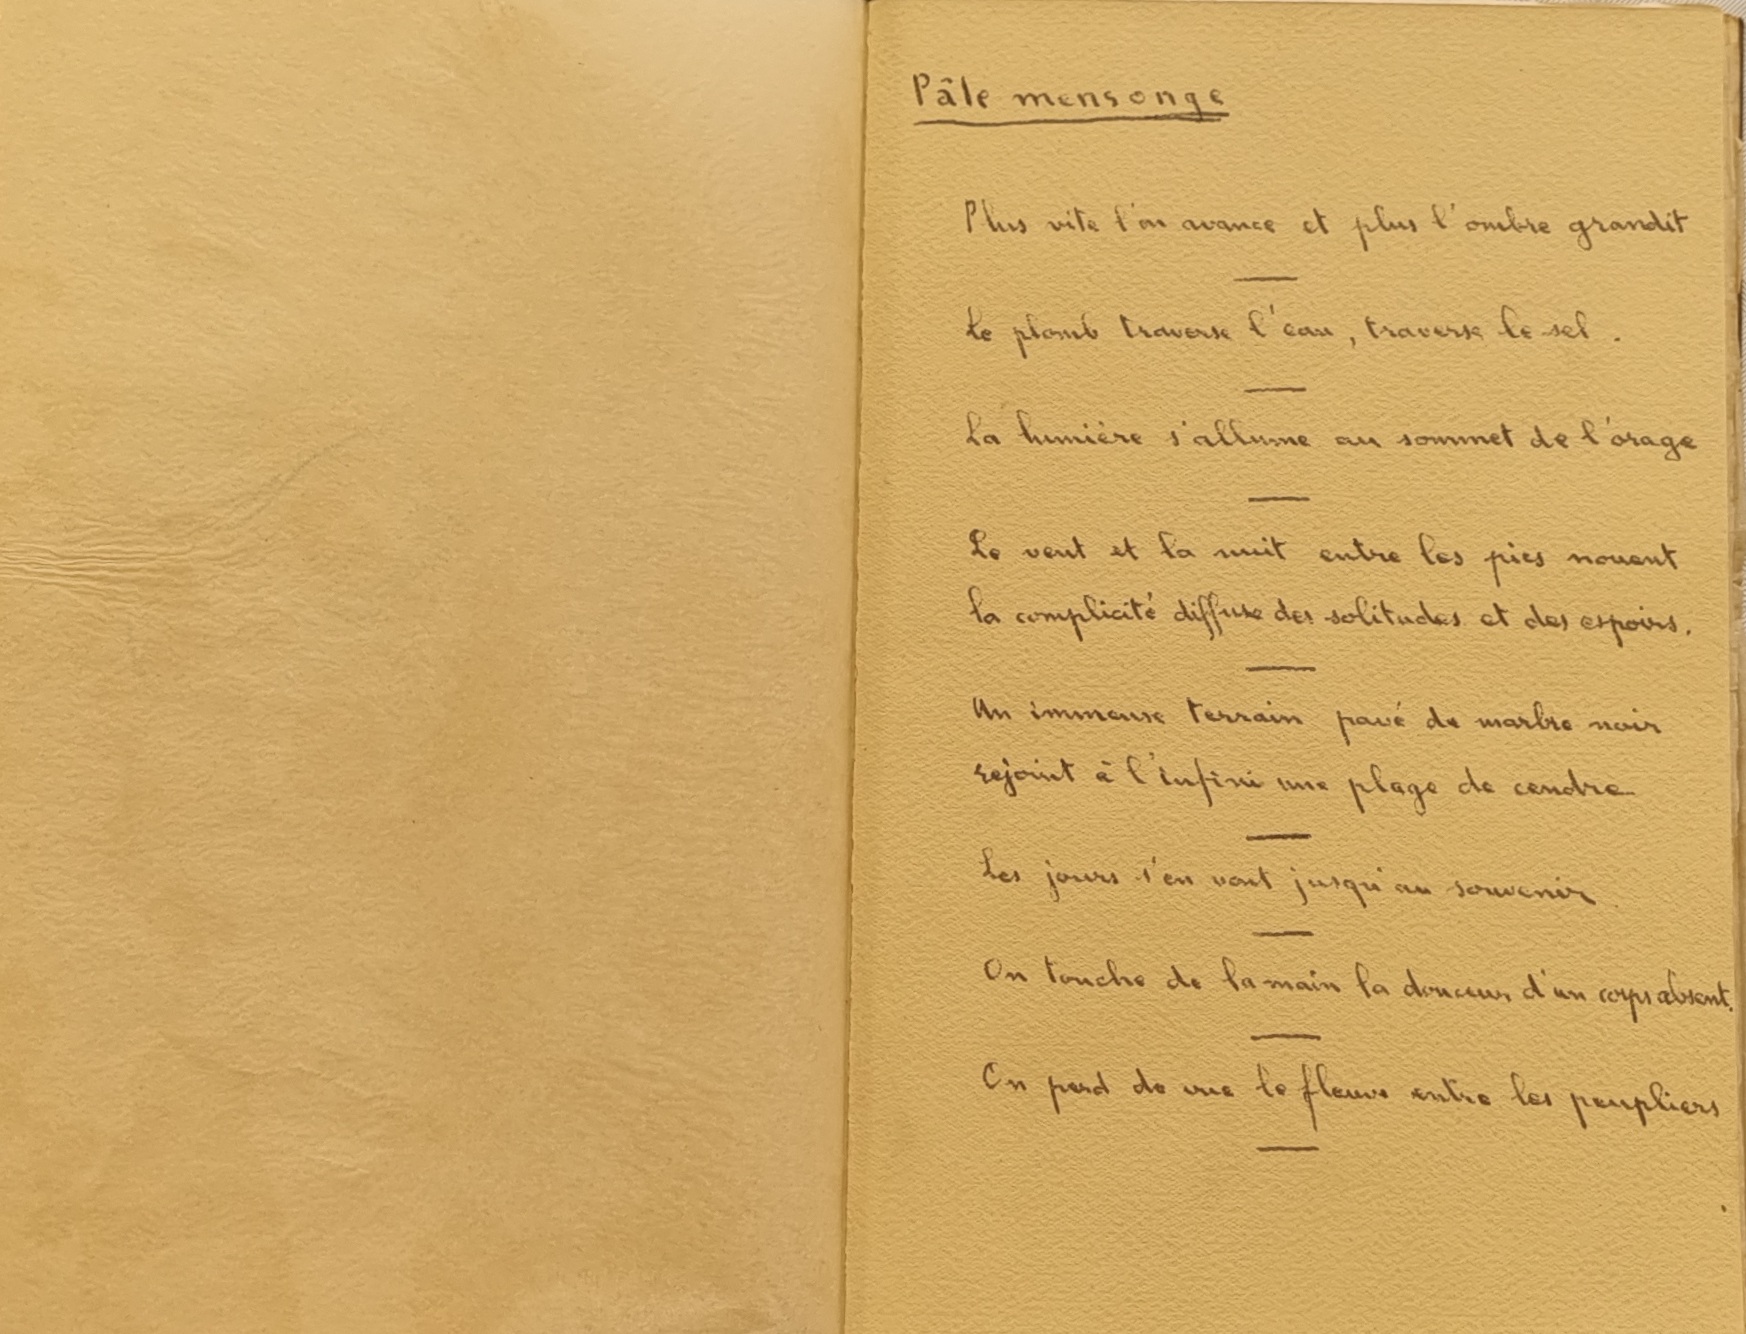 Pâle mensonge
Plus vite l'on avance et plus l'ombre grandit
Le plomb traverse l'eau, traverse le sel.
La lumière s'allume au sommet de l'orage
Le vent et la nuit entre les pies nouent
la complicité diffuse des solitudes et des espoirs.
Un immense terrain pavé de marbre noir
rejoint à l'infini une plage de cendre
Les jours s'en vont jusqu'au souvenir
On touche de la main la douceur d'un corps absent.
On perd de vue le fleuve entre les peupliers